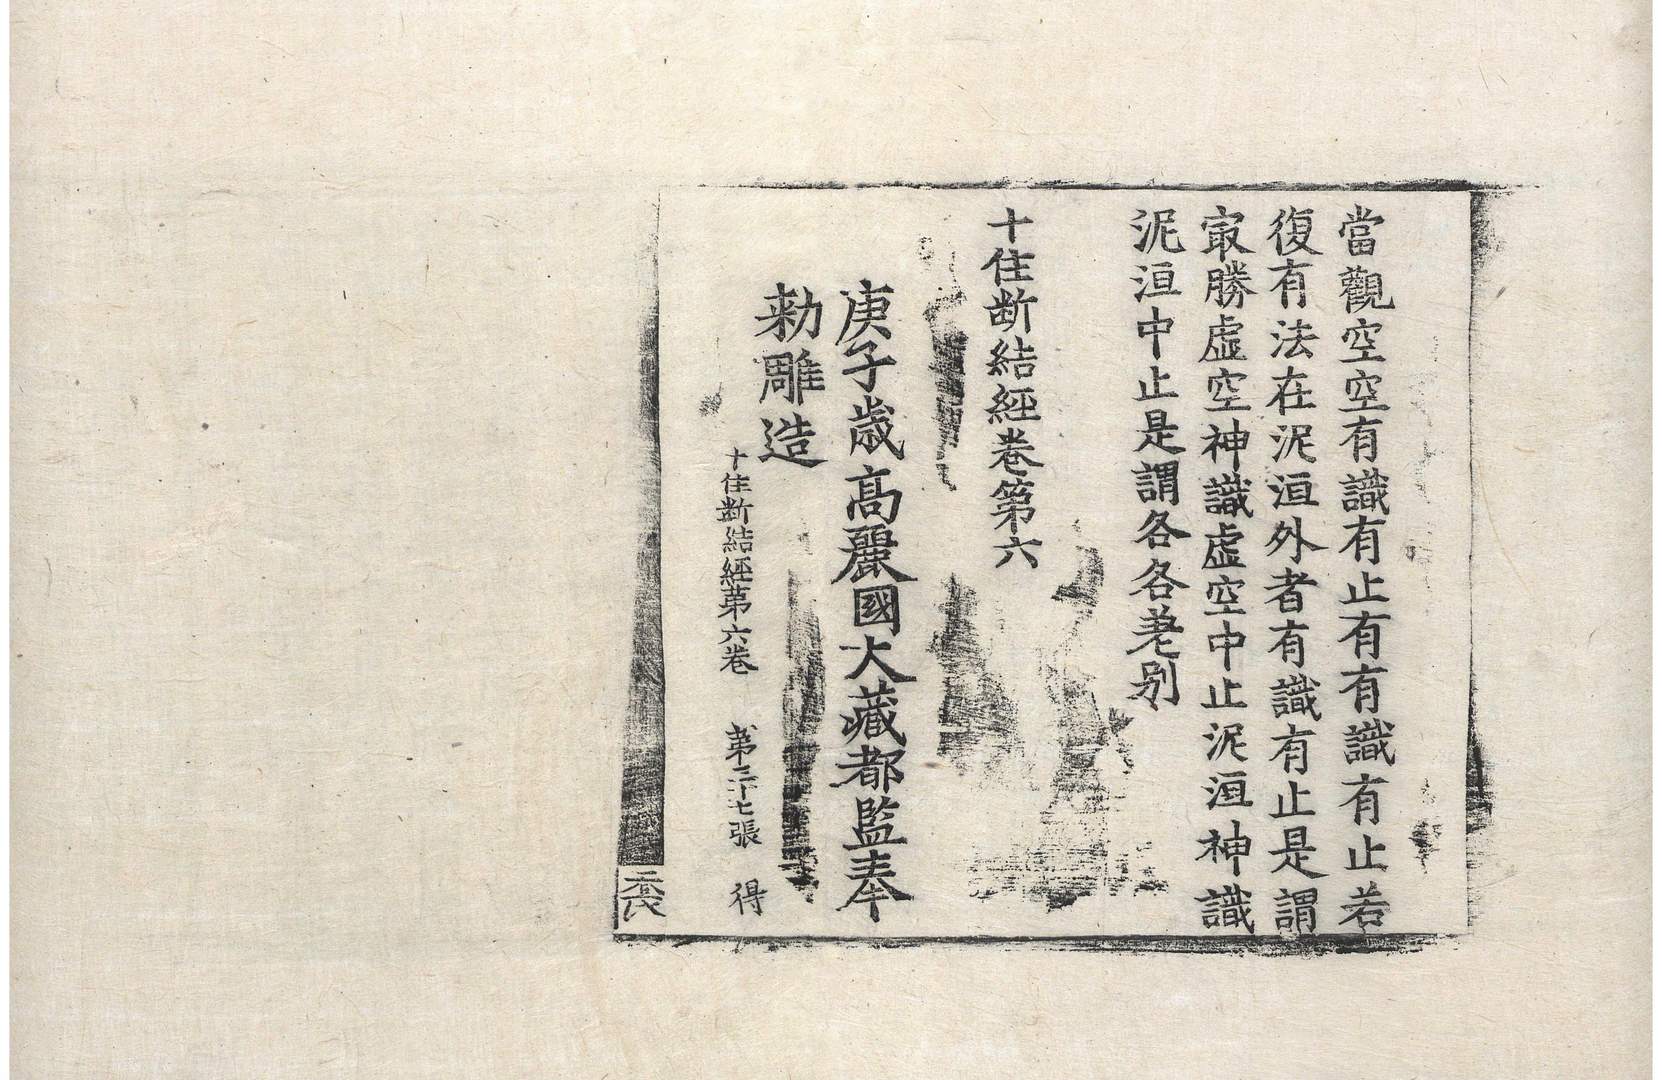 當觀空空有識有止有有識有止若
復有法在泥洹外者有識有止是謂
㝡勝虛空神識虛空中止泥洹神識
泥洹中止是謂各各差別
十住断結經卷第六
庚子歲高麗國大藏都監奉
勅雕造
十住断結經第六卷 第三十七張 得